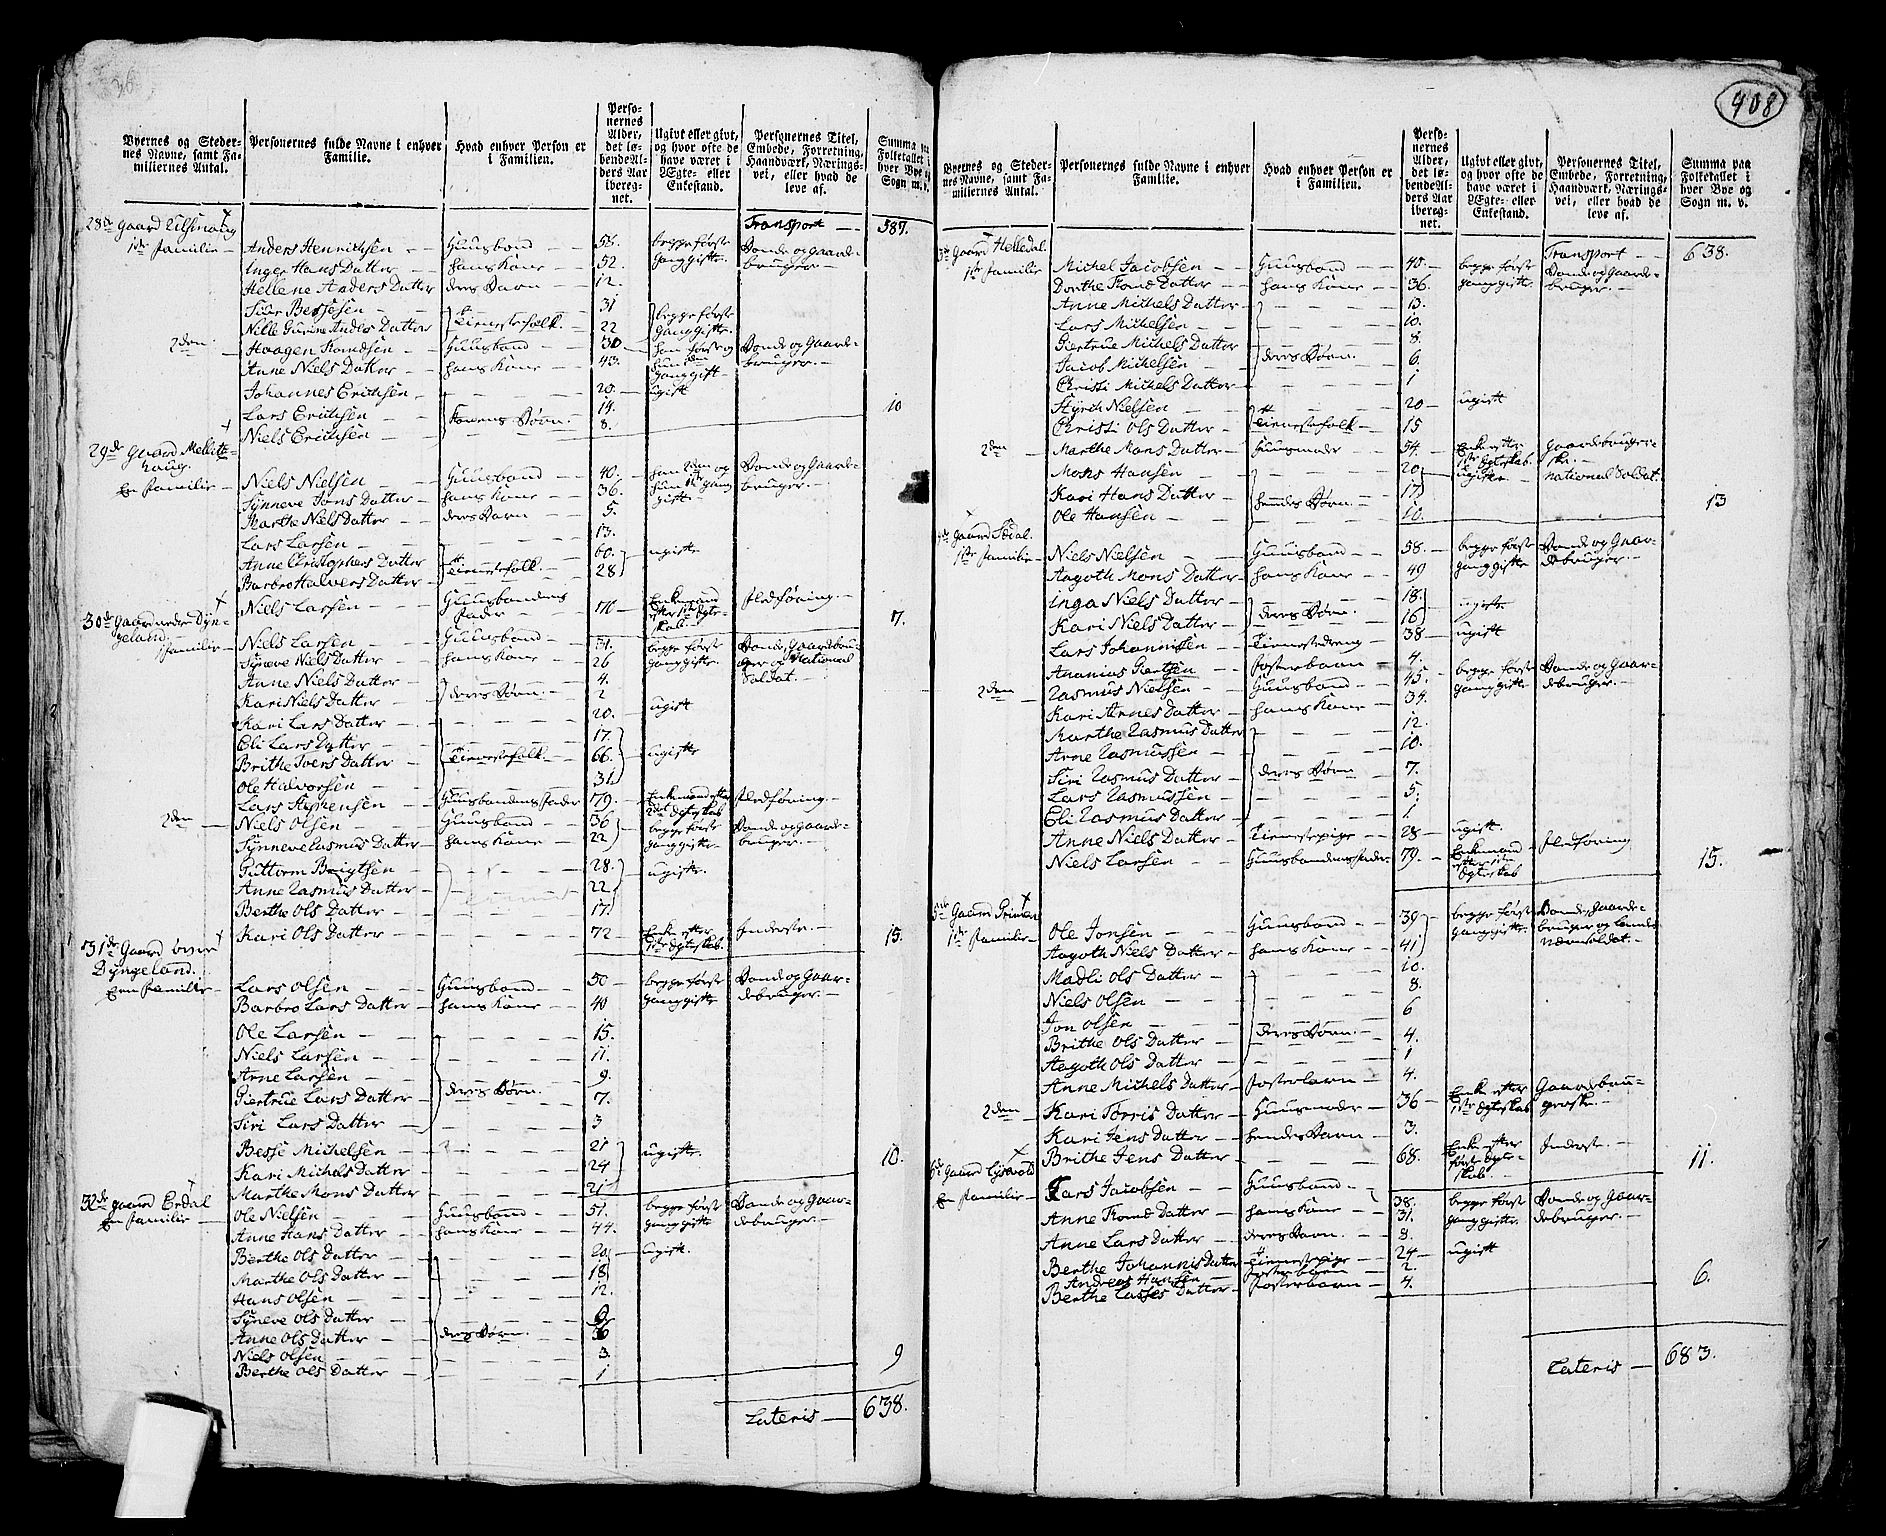 408
Byernes og Stedernes Navne, samt Familiernes Antal.
Personernes fulde Navne i enhver Familie.
Hvad enhver Person er i Familien.
Personernes Alder, det løbende Alders Aar iberegnet.
Ugivt eller givt, og hvor ofte de have været i Ægte- eller Enkestand.
Personernes Titel, Embede, Forretning, Haandværk, Næringsvei, eller hvad de leve af.
Summa paa Folketallet i hver Bye og Sogn m. v.
Transport — 587.
28de Gaard
1ste Familie — Anders Henrichsen — Huusbond — 58. begge første Bonde og Gaard-
Inger Hans Datter — hans Kone — 52. Gang gifte bruger. —
Hellene Anders Datter deres Barn — 12.
Siur Bessesen — 31 begge første
Nille Gurine Anders Datter Tienestefolk. 22 Gang gifte
2den — Haagen Tomdsen — Huusbond — 30 han første og Bonde og Gaard-
Anne Niels Datter — hans Kone — 43. hun 2den Gang gift — bruger. —
Johannes Erichsen — 20. — ugift
Lars Erichsen — Konens Børn — 14. 10
Niels Erichsen — 8.
29de Gaard Mellite-
haug.
En Familie — Niels Nielsen — Huusbond — 40. han 2den og Bonde og Gaard-
Synneve Jons Datter — hans Kone — 36. hun 1ste Gang gifte bruger. —
Marthe Niels Datter — deres Barn — 5.
Lars Larsen — 13.
Anne Christophers Datter Tienestefolk. 60. ugifte
Barbro Halvers Datter — 28
Niels Larsen — Huusbondens Fader — 70 — Enkemand efter 1ste Egteskab. Føderaad — 7.
30de Gaard nedre Dyn-
geland.
1 Familie — Niels Larsen — Huusbond — 31. begge første Bonde, Gaardbru-
Synneve Niels Datter — hans Kone — 26 Gang gifte ger og National
Anne Niels Datter — 4. Soldat. —
Kari Niels Datter — deres Børn. — 2
Kari Lars Datter — 20. — ugift
Eli Lars Datter — 17.
Brithe Ivers Datter — Tienestefolk — 66. ugifte
Ole Halvorsen — 31.
Lars Huusbondens Fader 79. — Enkemand efter
2den — Niels Olsen — Huusbond — 36 begge første Bonde og Gaard-
Synneve Rasmus Datter — hans Kone — 22 Gang gifte bruger. —
Guttorm — 28. ugifte.
Anne Rasmus Datter — 22
Berthe Ols Datter — 17.
Kari Ols Datter — 72 — Enke efter 1ste Egteskab. Inderste — 15.
31de Gaard øvre
Dyngeland.
Een Familie — Lars Olsen — Huusbond — 50 — begge første Bonde og Gaar-
Barbro Lars Datter — hans Kone — 40 Gang gifte debruger. —
Ole Larsen — 15.
Niels Larsen — 11.
Arne Larsen — 9.
Giertrue Lars Datter — deres Børn. — 7.
Siri Lars Datter — 3
Besse Michelsen — 21 ugifte. 10.
Kari Michels Datter — 24
Marthe Mons Datter — 21
32de Gaard Erdal
En Familie — Ole Nielsen — Huusbond — 51. begge først Bonde og Gaar-
Anne Hans Datter — hans Kone — 44. Gang gifte debruger. —
Berthe Ols Datter — 20. — ugift.
Marthe Ols Datter — 18
Hans Olsen — 12.
Syneve Ols Datter — 9
Anne Ols Datter — deres Børn. — 6
Niels Olsen — 3.
Berthe Ols Datter — 1 9
Lateris — 638.
Byernes og Stedernes Navne, samt Familiernes Antal.
Personernes fulde Navne i enhver Familie.
Hvad enhver Person er i Familien.
Personernes Alder, det løbende Alders Aar iberegnet.
Ugivt eller givt, og hvor ofte de have været i Ægte- eller Enkestand.
Personernes Titel, Embede, Forretning, Haandværk, Næringsvei, eller hvad de leve af.
Summa paa Folketallet i hver Bye og Sogn m. v.
Gaard Helledal. Transport — 638.
1ste Familie Michel Jacobsen — Huusbond — 40 — begge først Bonde og Gaard-
Dorthe Tomd Datter — hans Kone — 36. Gang gifte bruger. —
Anne Michels Datter — 13.
Lars Michelsen — 10.
Giertrue Michels Datter — 8.
Jacob Michelsen — deres Børn. — 6.
Christi Michels Datter — 1
Styrch Nielsen — 20 — ugift
Christi Ols Datter — Tienestefolk — 15
2den — Marthe Mons Datter — Huusmoder — 54. — Enke efter 1ste Egteskab. Gaardbruger-
ske. —
Mons Hansen — 20 ugifte — National Soldat.
Kari Hans Datter — hendes Børn. — 17 13
Ole Hansen — 10.
Gaard Sædal.
1ste Familie — Niels Nielsen — Huusbond — 58. begge først Bonde og Gaar-
Aagoth Mons Datter — hans Kone — 49 Gang gifte debruger. —
Inga Niels Datter — 18. ugifte
Kari Niels Datter — deres Børn. — 16
Lars Johannisen — Tienestedreng 38 — ugift
Ananias — Fosterbaarn — 4.
2den — Rasmus Nielsen — Huusbond — 45. begge først Bonde og Gaar-
Kari Arnes Datter — hans Kone — 34. Gang gifte debruger. —
Marthe Rasmus Datter 12.
Arne Rasmussen — 10.
Siri Rasmus Datter — deres Børn — 7.
Lars Rasmussen — 5.
Eli Rasmus Datter — 1.
Anne Niels Datter — Tienestepige — 28 — ugift.
Niels Larsen — Huusbondens Fader 79. — Enkemand efter 1ste Egteskab Føderaad 15.
5te Gaard
1ste Familie — Ole Jonsen — Huusbond — 39 begge først Bonde, Gaard-
Aagoth Niels Datter — hans Kone — 41 Gang gifte bruger og Lande-
værnsoldat. —
Madli Ols Datter — 10.
Niels Olsen — 8.
Jon Olsen — 6
Brithe Ols Datter — deres Børn. — 4.
Aagoth Ols Datter — 1
Anne Michels Datter — Fosterbarn — 4.
2den — Kari Torris Datter — Huusmoder — 36 — Enke efter 1ste Egteskab Gaardbru-
gerske. —
Kari Jens Datter — hendes Barn — 3.
Brithe Jens Datter — 68. Enke efter første Egte-
skab. Inderste. — 11.
6te Gaard
En Familie — Lars Jacobsen — Huusbond — 38. begge først Bonde og Gaar-
Anne Tomd Datter — hans Kone — 31. Gang gifte debruger. —
Anne Lars Datter — deres Barn. — 8.
Berthe Johannis Datter Tienestepige — 24 — ugift
Andreas Hansen — Fosterbarn — 2.
Berthe Lasses Datter — Fosterbarn — 4. 6.
Lateris — 683.